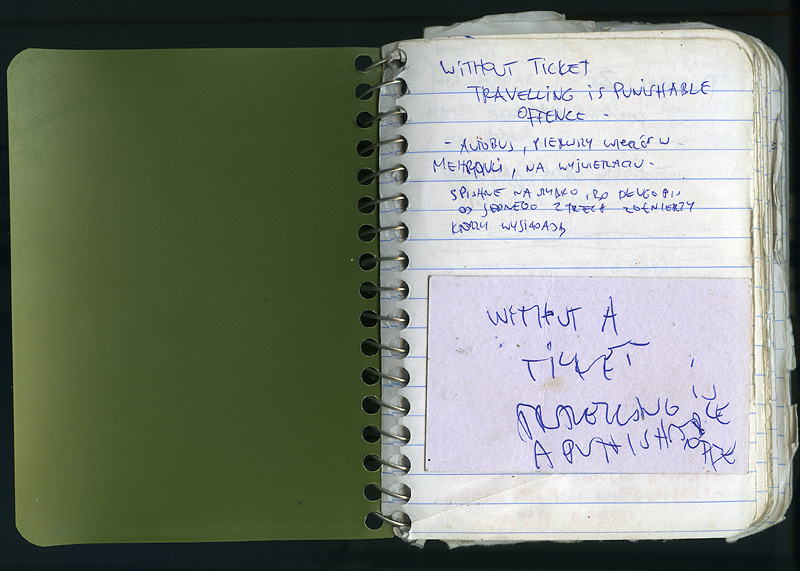 WITHOUT TICKET
TRAVELLING IS PUNISHABLE
OFFENCE -
- AUTOBUS, PIERWSZY WIECZÓR W
MEHRAULI, NA WYJŚCIACH.
SPISANE NA SZYBKO, DŁUGOPIS
OD JEDNEGO Z TRZECH ŻOŁNIERZY
KTÓRZY WYSIADAJĄ
WITHOUT A
TICKET
TRAVELLING IS
A PUNISHABLE
OFFE